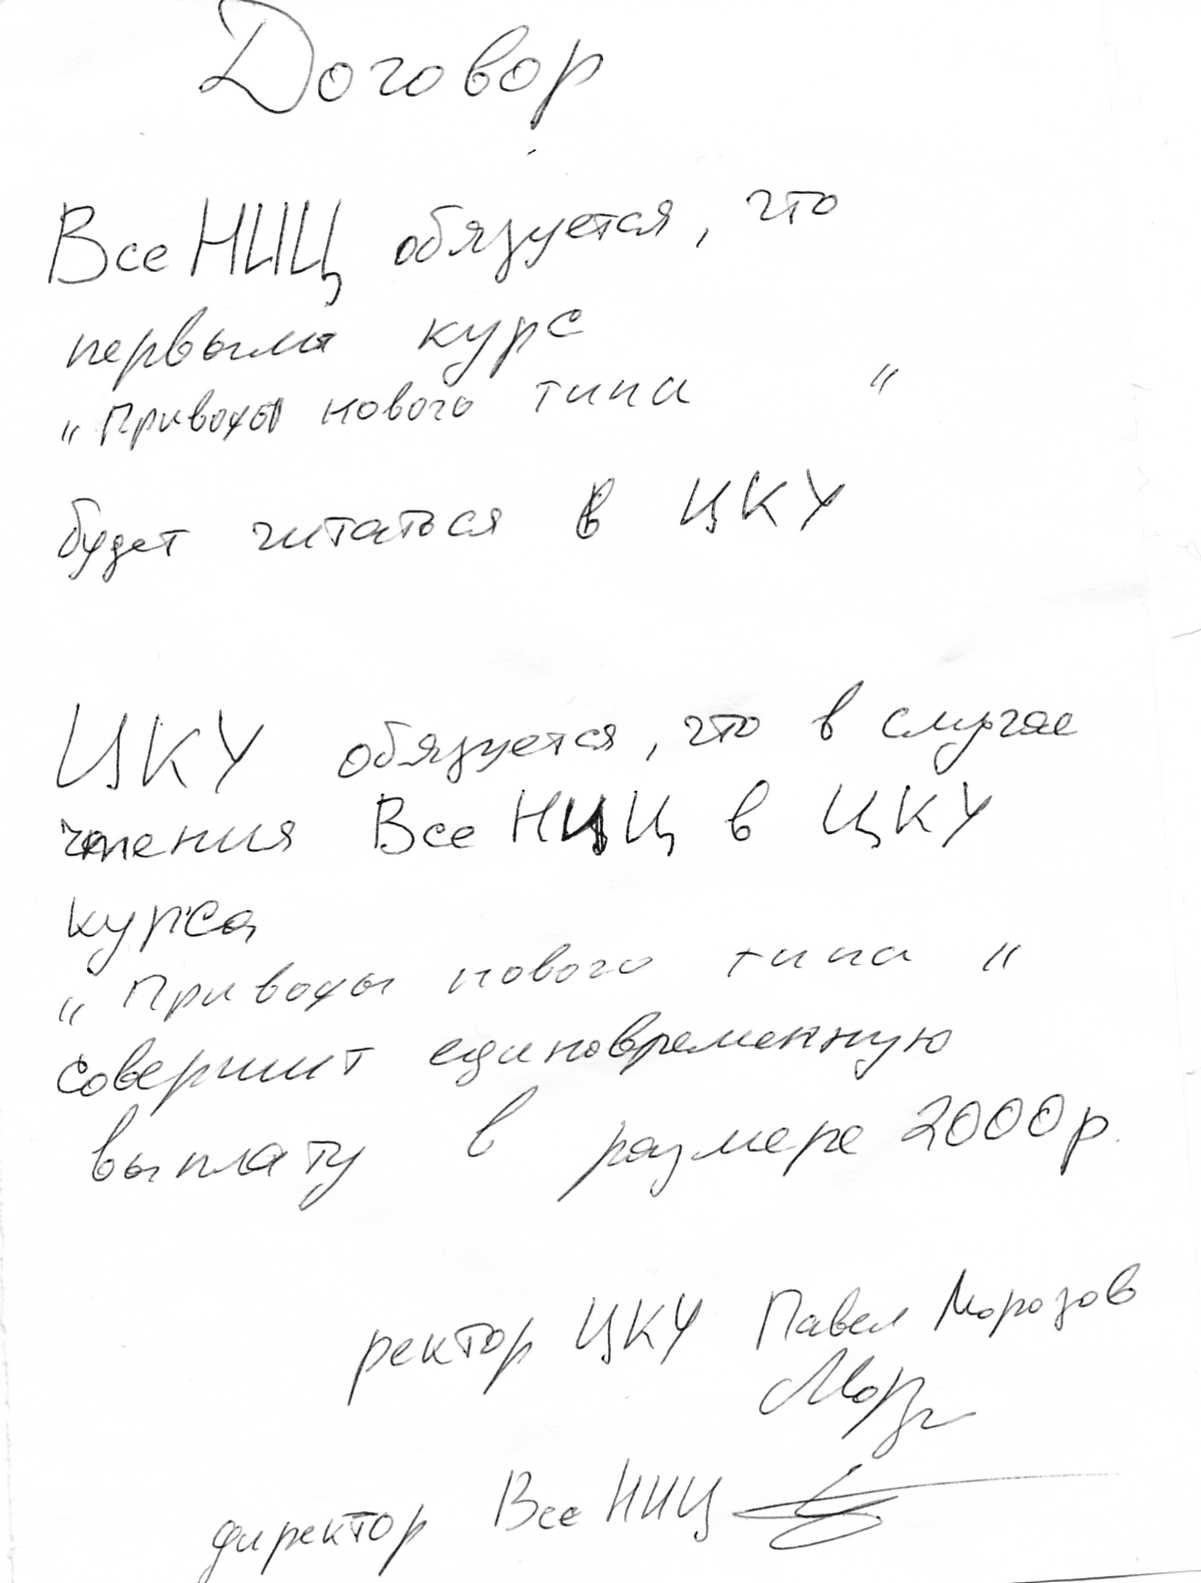 Договор
ВсеНИЦ обязуется, что
первыми курс
„Приводы нового типа “
будет читаться в ЦКУ
ЦКУ обязуется, что в случае
чтения ВсеНИЦ в ЦКУ
курса
„Приводы нового типа “
совершит единовременную
выплату в размере 2000р.
ректор ЦКУ Павел Морозов
директор ВсеНИЦ